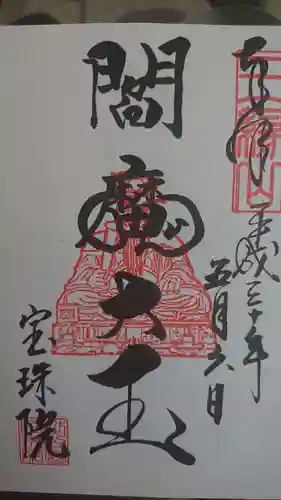 奉拝
平成三十年
五月六日
閻魔大王
宝珠院